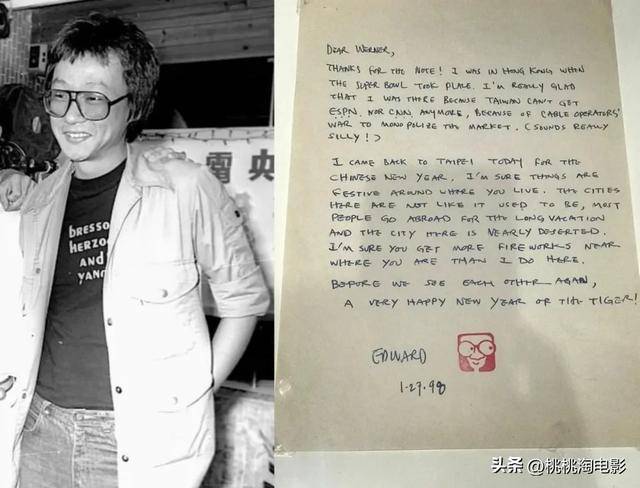 電 央
bresson
herzog
and
yang
DEAR WERNER,
THANKS FOR THE NOTE! I WAS IN HONG KONG WHEN
THE SUPER BOWL TOOK PLACE. I'M REALLY GLAD
THAT I WAS THERE BECAUSE TAIWAN CAN'T GET
ESPN, NOR CNN, ANYMORE, BECAUSE OF CABLE OPERATORS'
WAR TO MONOPOLIZE THE MARKET. (SOUNDS REALLY
SILLY!)
I CAME BACK TO TAIPEI TODAY FOR THE
CHINESE NEW YEAR. I'M SURE THINGS ARE
FESTIVE AROUND WHERE YOU LIVE. THE CITIES
HERE ARE NOT LIKE IT USED TO BE, MOST
PEOPLE GO ABROAD FOR THE LONG VACATION
AND THE CITY HERE IS NEARLY DESERTED.
I'M SURE YOU GET MORE FIREWORKS NEAR
WHERE YOU ARE THAN I DO HERE.
BEFORE WE SEE EACH OTHER AGAIN,
A VERY HAPPY NEW YEAR OF THE TIGER!
EDWARD
1.27.98
头条 @桃桃淘电影